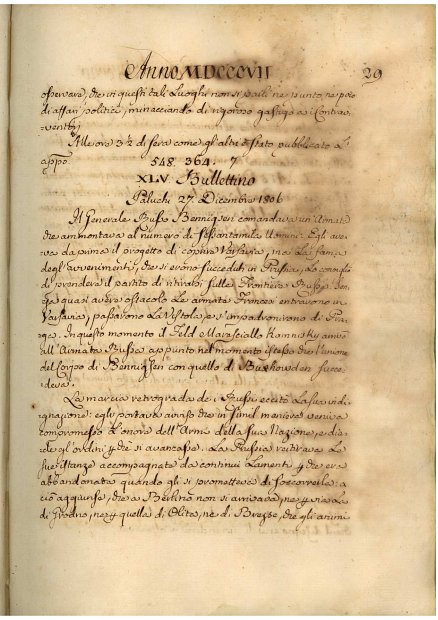 Anno MDCCCVII
29
osservare, che in questi tali Luoghi non si parli ne punto, ne poco
di affari politici, minacciando di rigoroso gastigo a i Contra-
ventori
Alle ore 3½ di sera come gl'altri è stato pubblicato l'
appo.
548. 364. 7
XLV. Bullettino
Paluchi 27. Dicembre 1806
Il Generale Russo Bennigsen comandava un'Armata
che ammontava al numero di sessantamila Uomini. Egli ave-
va da prima il progetto di coprire Varsavia, ma la fama
degl'avvenimenti, che si erono succeduti in Prussia, lo consigliò
di prendere il partito di ritirarsi sulla Frontiera Russa. Sen-
za quasi avere ostacolo le armate Francesi entrarono in
Varsavia, passarono la Vistola, e s'impadronirono di Pra-
ga. In questo momento il Feld Maresciallo Kaminsky arrivò
all'Armata Russa appunto nel momento istesso che l'unione
del Corpo di Bennigsen con quello di Buxhowden succe-
deva.
La marcia retrograda de i Russi eccitò la sua indi-
gnazione: egli portava avviso che in simil maniera veniva
compromesso l'onore dell'Armi della sua Nazione, e die-
de gli ordini che si avanzasse. La Prussia reiterava le
sue istanze accompagnate da continui Lamenti che era
abbandonata quando gli si prometteva di soccorrerla: a
ciò aggiunse, che a Berlino non si arrivava, ne per via
di Grodno, ne per quella di Olita, ne di Bresse, che gli animi